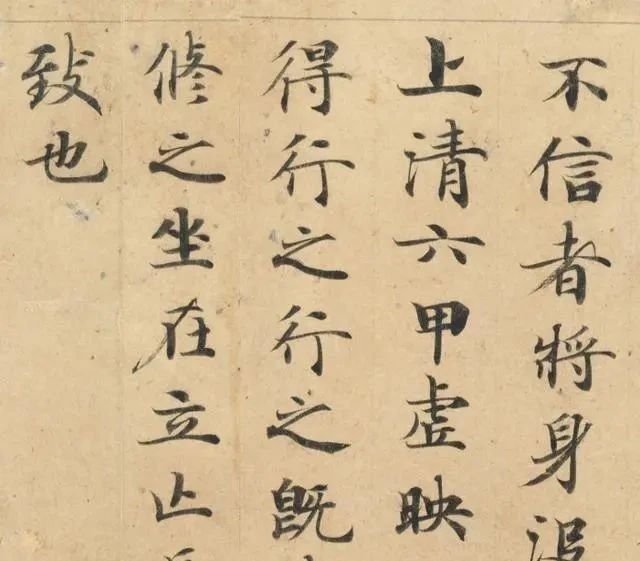 不信者將身沒
上清六甲虛映
得行之行之既
脩之坐在立亾
致也